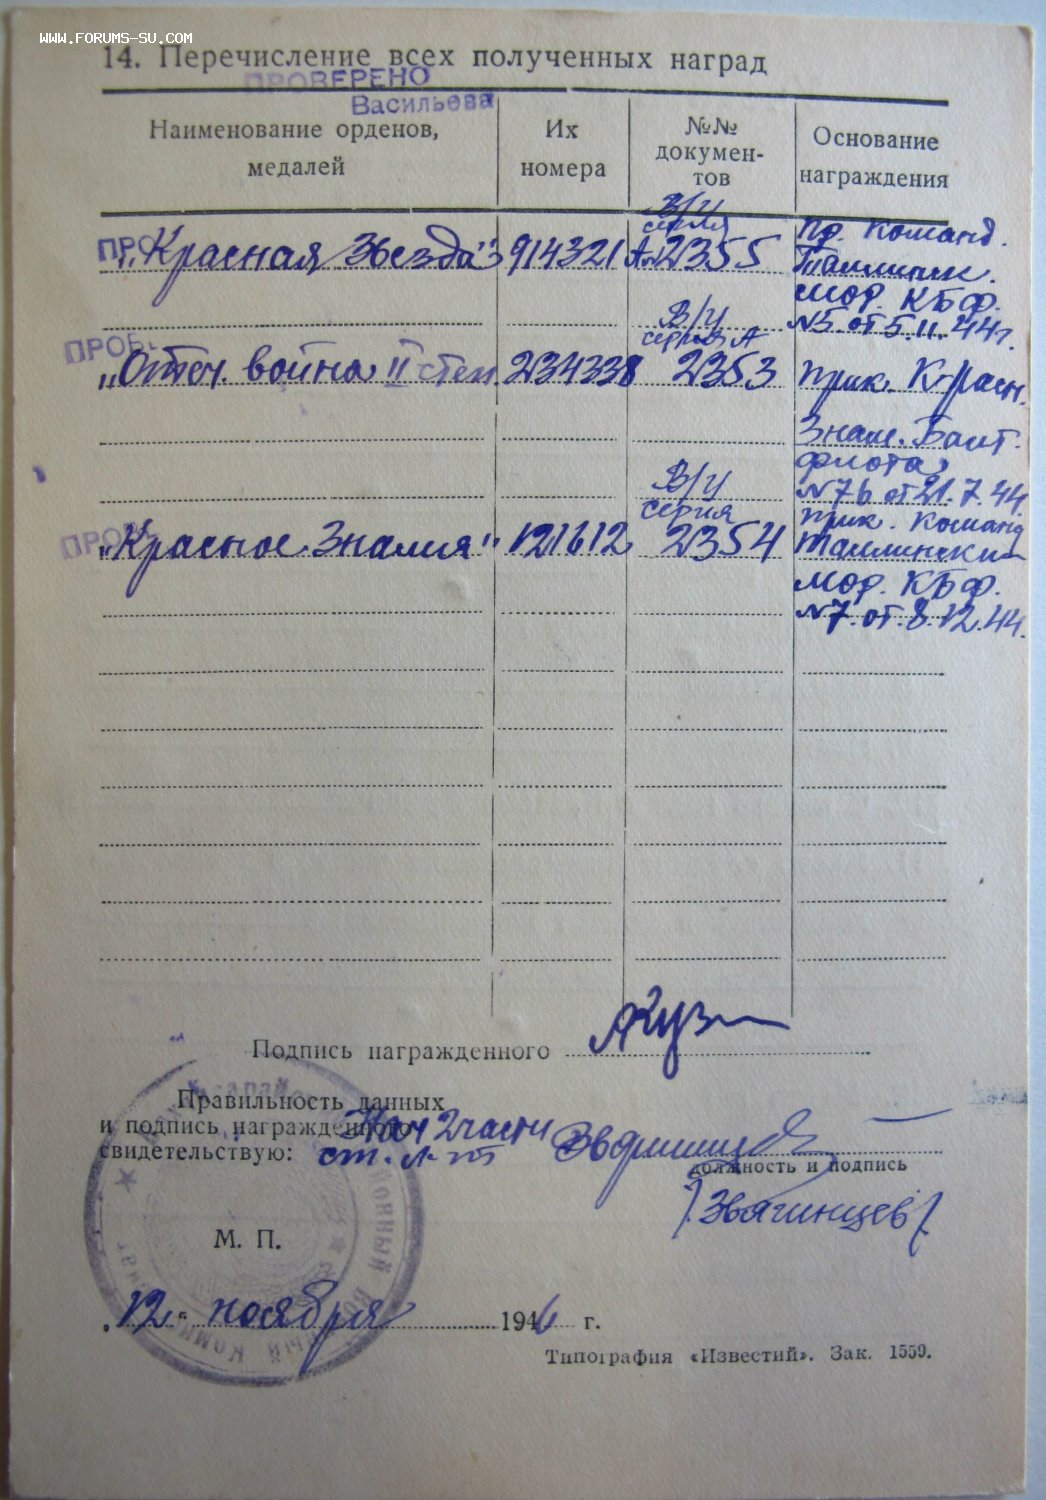 WWW.FORUMS-SU.COM
14. Перечисление всех полученных наград
ПРОВЕРЕНО
Васильева
Наименование орденов, медалей
Их номера
№№ докумен-
тов
Основание награждения
В/у
серия
„Красная Звезда" 914321 А№2355 Пр. Команд.
Таллинск.
мор. КБФ.
№5 от 5.11.44г.
В/у
серия А
„Отеч. война II степ 234338 2353 Прик. Красн.
Знам. Балт.
флота
№76 от 21.7.44
В/у
серия
„Красное Знамя" 121612 2354 Прик. Команд
Таллинский
мор. КБФ.
№7. от 8.12.44.
Подпись награжденного
Правильность данных
и подпись награжденного
свидетельствую:
Нач 2 части
ст. л-т
должность и подпись
/Звягинцев/
М. П.
„12" ноября 1946 г.
Типография «Известий». Зак. 1559.